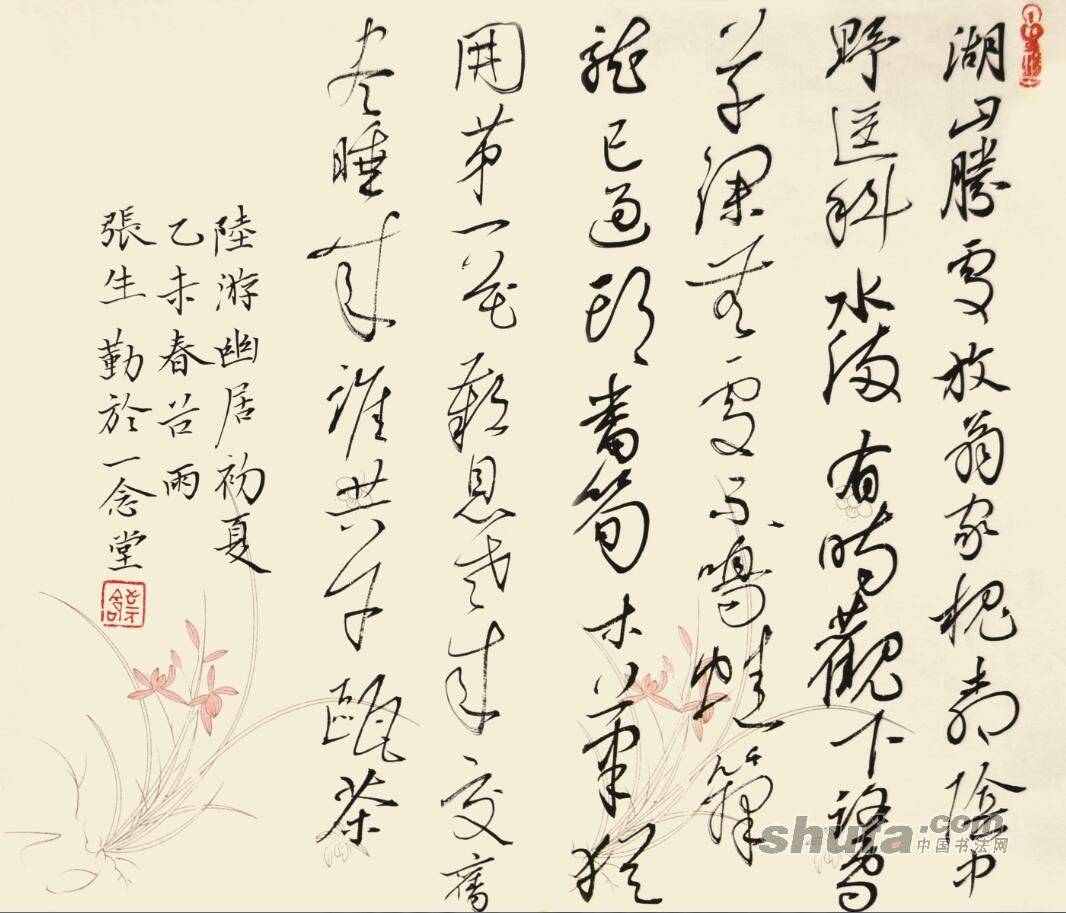 湖山勝處放翁家槐柳陰中
野逕斜水滿有時觀下鷺
草深無處不鳴蛙籜
龍已過頭番筍木筆猶
開第一花歎息老來交舊
盡睡來誰共午甌茶
陸游幽居初夏
乙未春谷雨
張生勤於一念堂
shufa.com
中国书法网